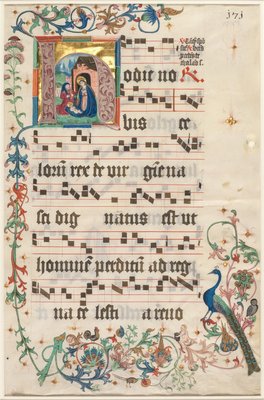 171
Hodie no
bis ce
lorū rex de vir gīe na
sci dig natus est ut
hominē perditū ad reg
na ce lesti a reno